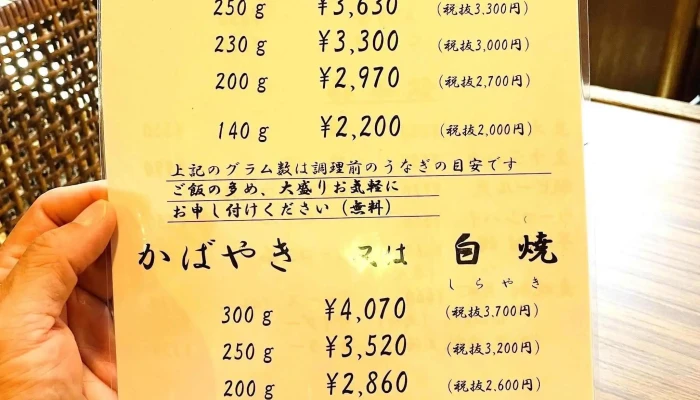 250 g ¥3,630 (税抜3,300円)
230 g ¥3,300 (税抜3,000円)
200 g ¥2,970 (税抜2,700円)
140 g ¥2,200 (税抜2,000円)
上記のグラム数は調理前のうなぎの目安です
ご飯の多め、大盛りお気軽に
お申し付けください（無料）
かばやき 又は 白焼
しらやき
300 g ¥4,070 (税抜3,700円)
250 g ¥3,520 (税抜3,200円)
200 g ¥2,860 (税抜2,600円)